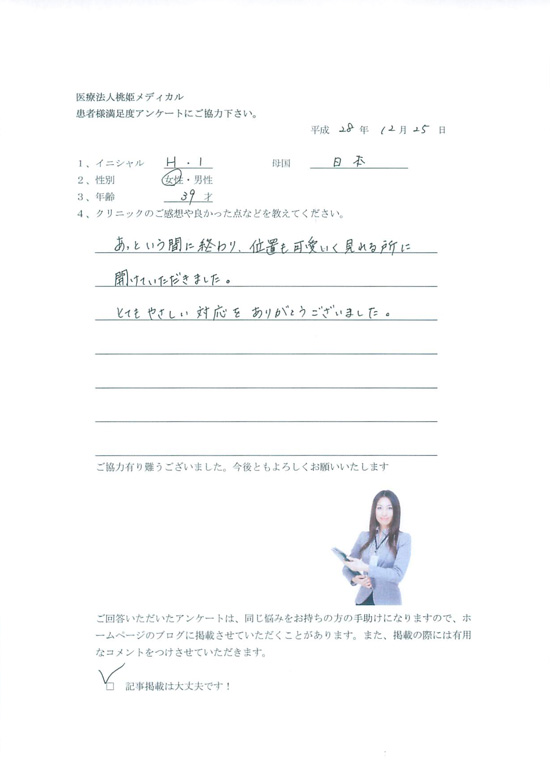 医療法人桃姫メディカル
患者様満足度アンケートにご協力下さい。
平成 28 年 12 月 25 日
1、イニシャル H・I 母国 日本
2、性別 女性・男性
3、年齢 39 才
4、クリニックのご感想や良かった点などを教えてください。
あっという間に終わり、位置も可愛いく見れる所に
開けていただきました。
とてもやさしい対応をありがとうございました。
ご協力有り難うございました。今後ともよろしくお願いいたします
ご回答いただいたアンケートは、同じ悩みをお持ちの方の手助けになりますので、ホ
ームページのブログに掲載させていただくことがあります。また、掲載の際には有用
なコメントをつけさせていただきます。
□ 記事掲載は大丈夫です！